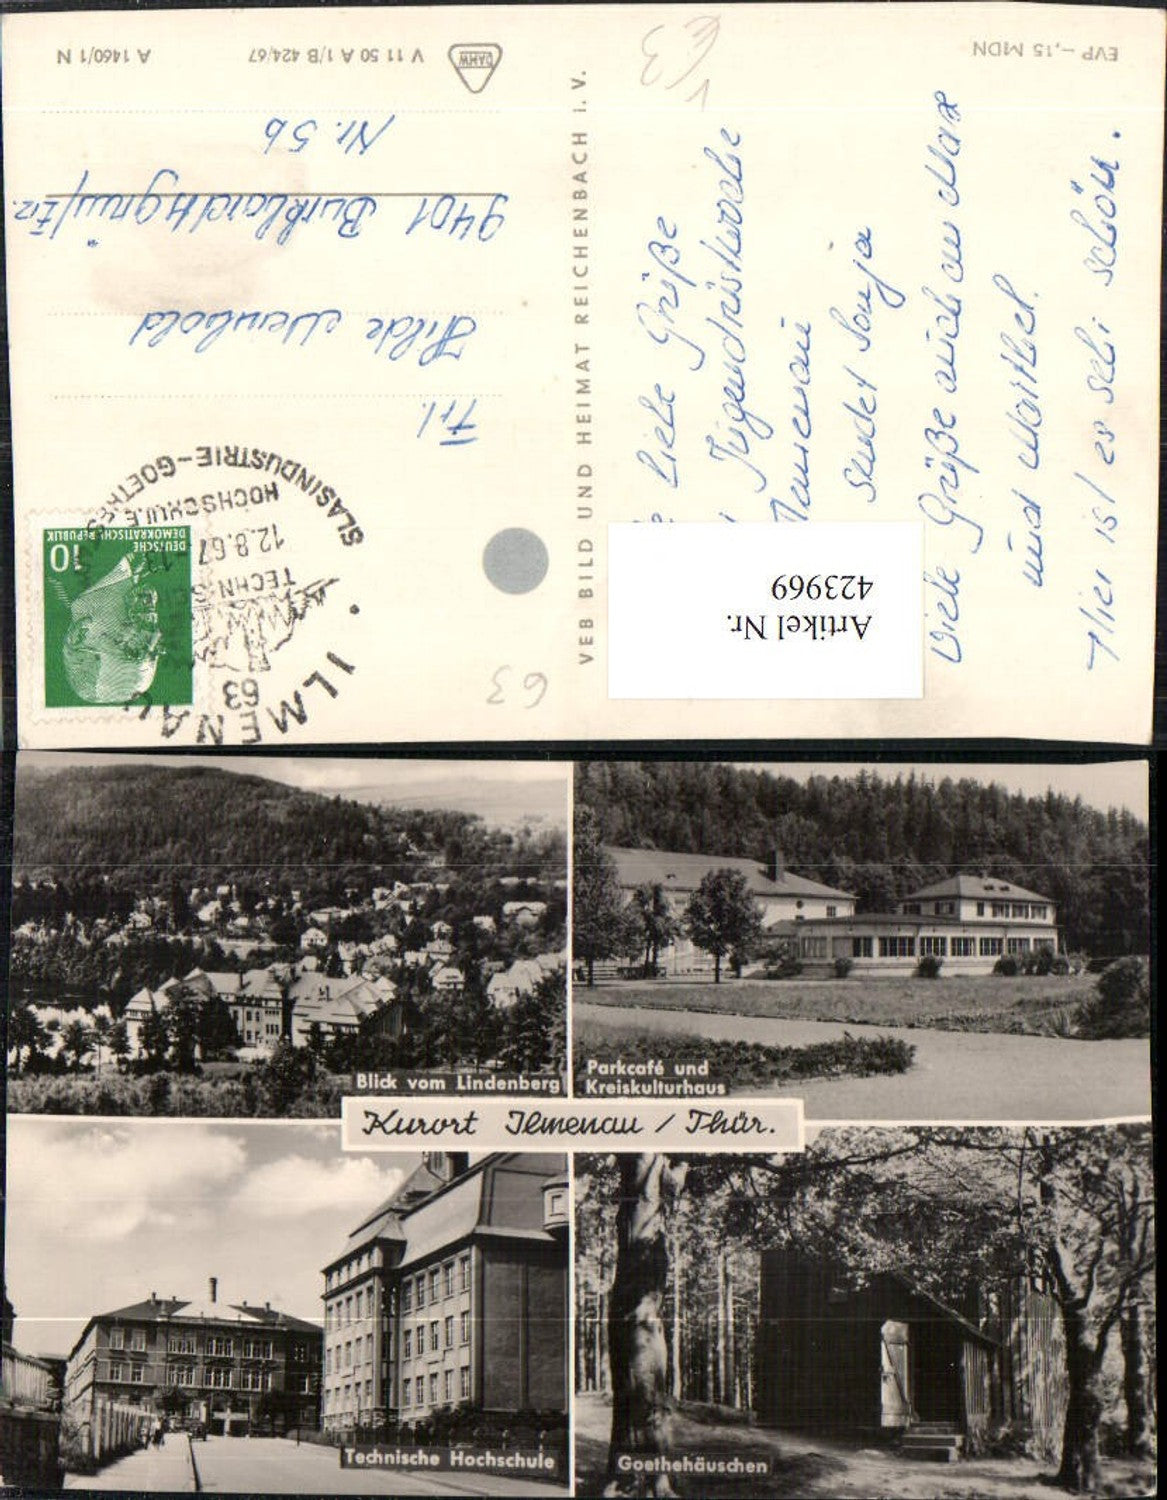 EVP –,15 MDN
V 11 50 A 1/B 424/67
A 1460/1 N
DAHW
VEB BILD UND HEIMAT REICHENBACH I. V.
Liebe Grüße
Ilmenau
sendet Sonja
Viele Grüße auch an Max
und
Hier ist es sehr schön.
63
Artikel Nr.
423969
63
ILMENAU
63
GLASINDUSTRIE–GOETHE
TECHN.
HOCHSCHULE
12.8.67
DEUTSCHE
DEMOKRATISCHE REPUBLIK
10
Frl.
Hilde
9401 Burkhardtsgrün/Erz.
Nr. 5b
Blick vom Lindenberg
Parkcafé und
Kreiskulturhaus
Kurort Ilmenau / Thür.
Technische Hochschule
Goethehäuschen